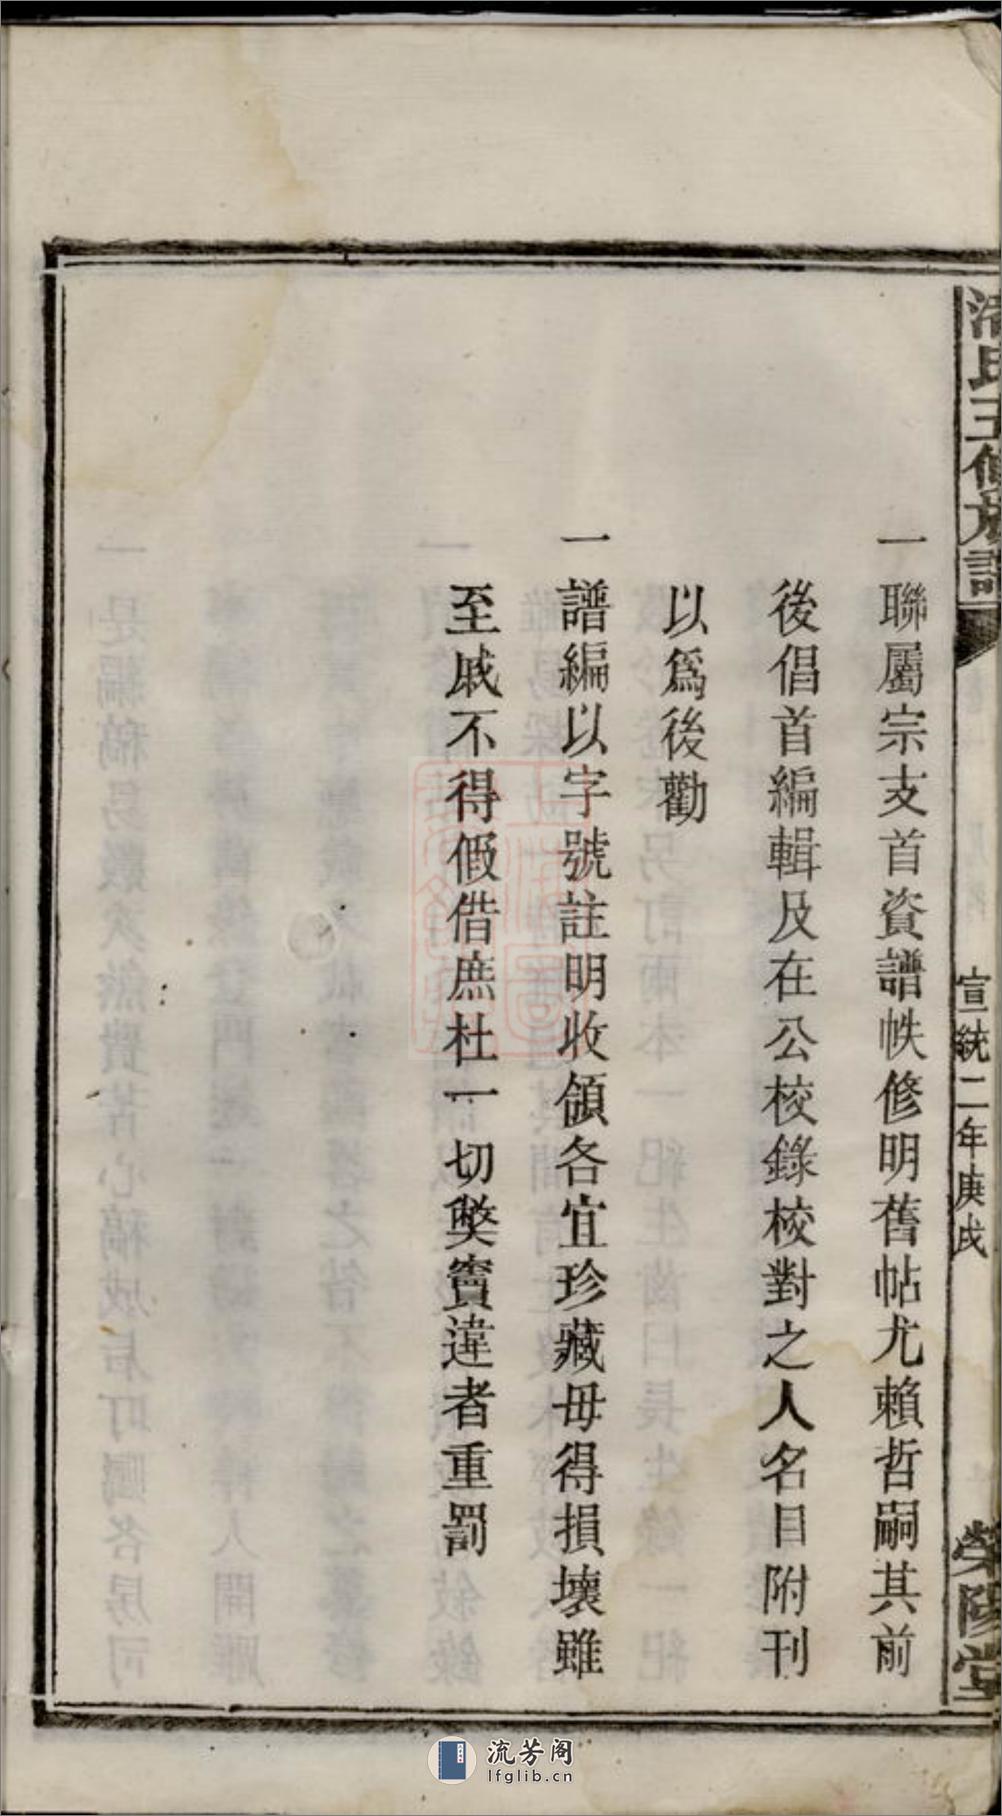 潘氏五修族譜
宣統二年庚戌
榮陽堂
一聯屬宗支首資譜帙修明舊帖尤賴哲嗣其前
後倡首編輯及在公校錄校對之人名目附刊
以爲後勸
一譜編以字號註明收領各宜珍藏毋得損壞雖
至戚不得假借庶杜一切獘竇違者重罰
流芳阁
lfglib.cn